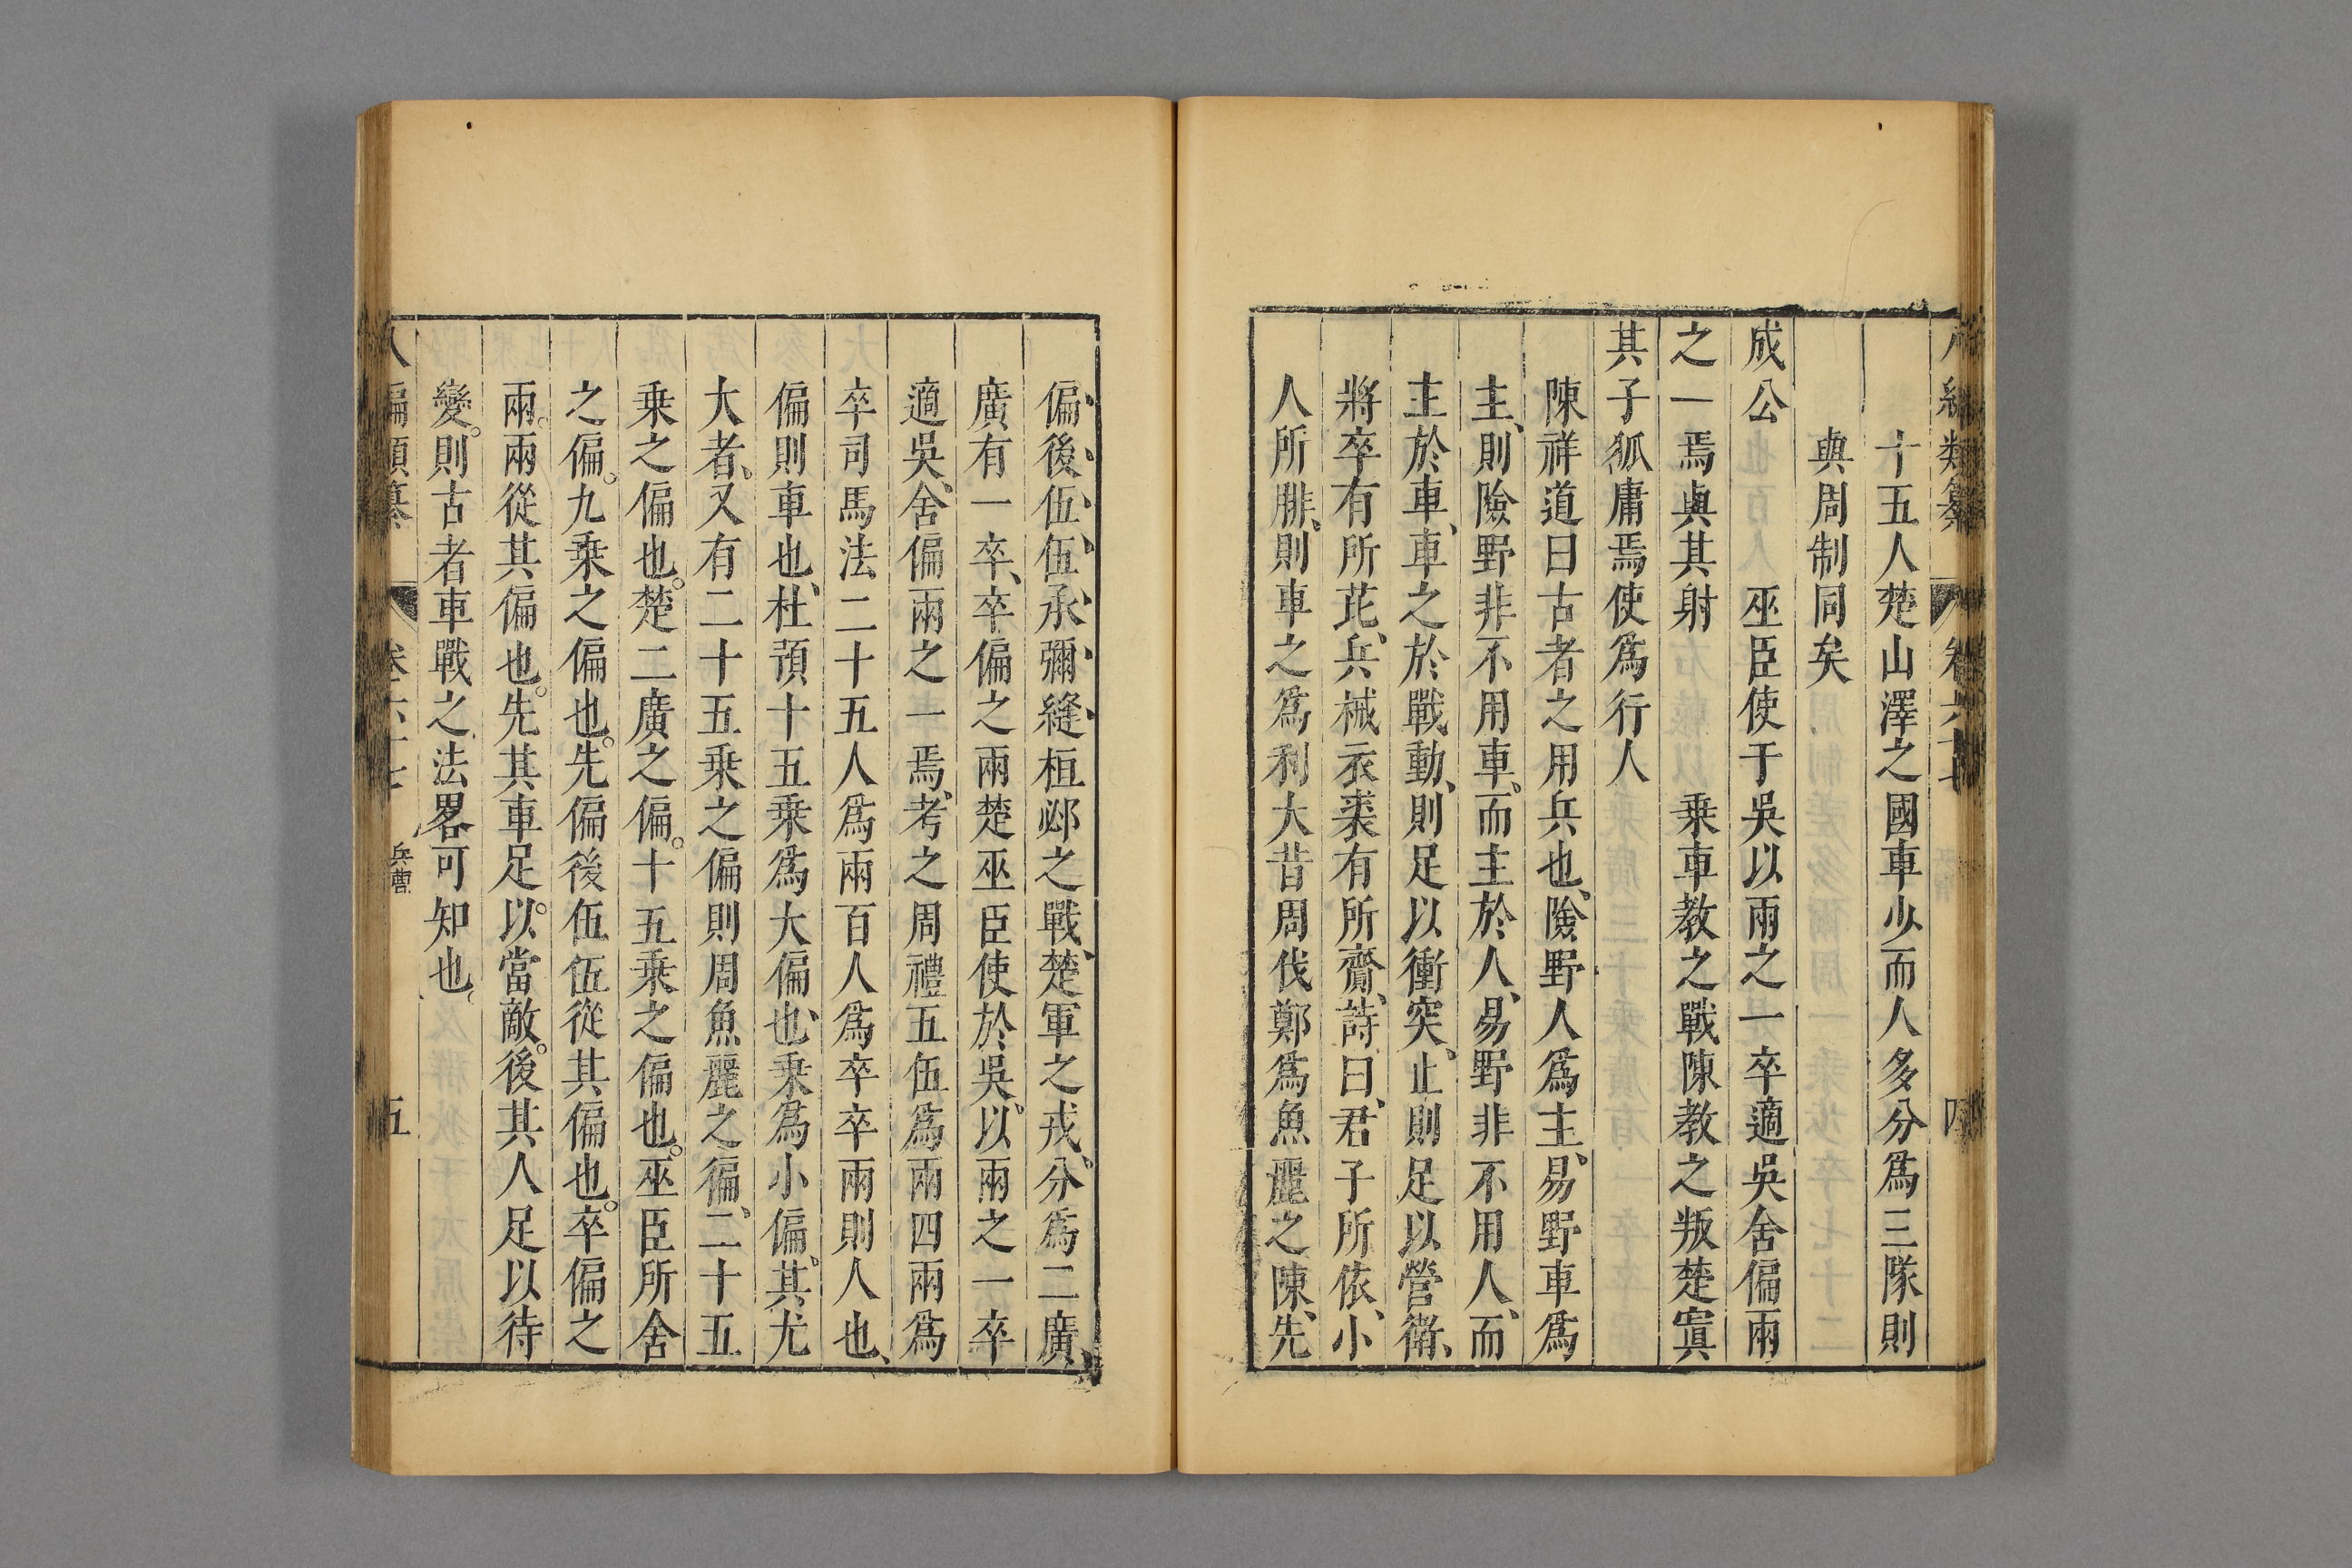 類纂 卷六十七 四
十五人楚山澤之國車少而人多分爲三隊則
與周制同矣
成公 巫臣使于吳以兩之一卒適吳舍偏兩
之一焉與其射 乗車教之戰陳教之叛楚寘
其子狐庸焉使爲行人
陳祥道曰古者之用兵也、險野人爲主、易野車爲
主、則險野非不用車、而主於人、易野非不用人、而
主於車、車之於戰動、則足以衝突、止則足以營衞、
將卒有所芘、兵械衣裘有所齎、詩曰、君子所依、小
人所腓、則車之爲利大昔周伐鄭爲魚麗之陳、先
偏、後、伍、伍、承、彌、縫、桓邲之戰、楚軍之戎、分爲二廣、
廣有一卒、卒偏之兩楚巫臣使於吳、以兩之一卒
適吳、舍偏兩之一焉、考之周禮五伍爲兩四兩爲
卒司馬法二十五人爲兩百人爲卒卒兩則人也、
偏則車也、杜預十五乗爲大偏也、乗爲小偏、其尤
大者、又有二十五乗之偏則周魚麗之徧、二十五
乗之偏也。楚二廣之偏。十五乗之偏也。巫臣所舍
之偏。九乗之偏也。先偏後伍伍從其偏也。卒偏之
兩。兩從其偏也。先其車足以。當敵。後其人足以待
變。則古者車戰之法畧可知也。
八編類纂 卷六十七 兵曹 五